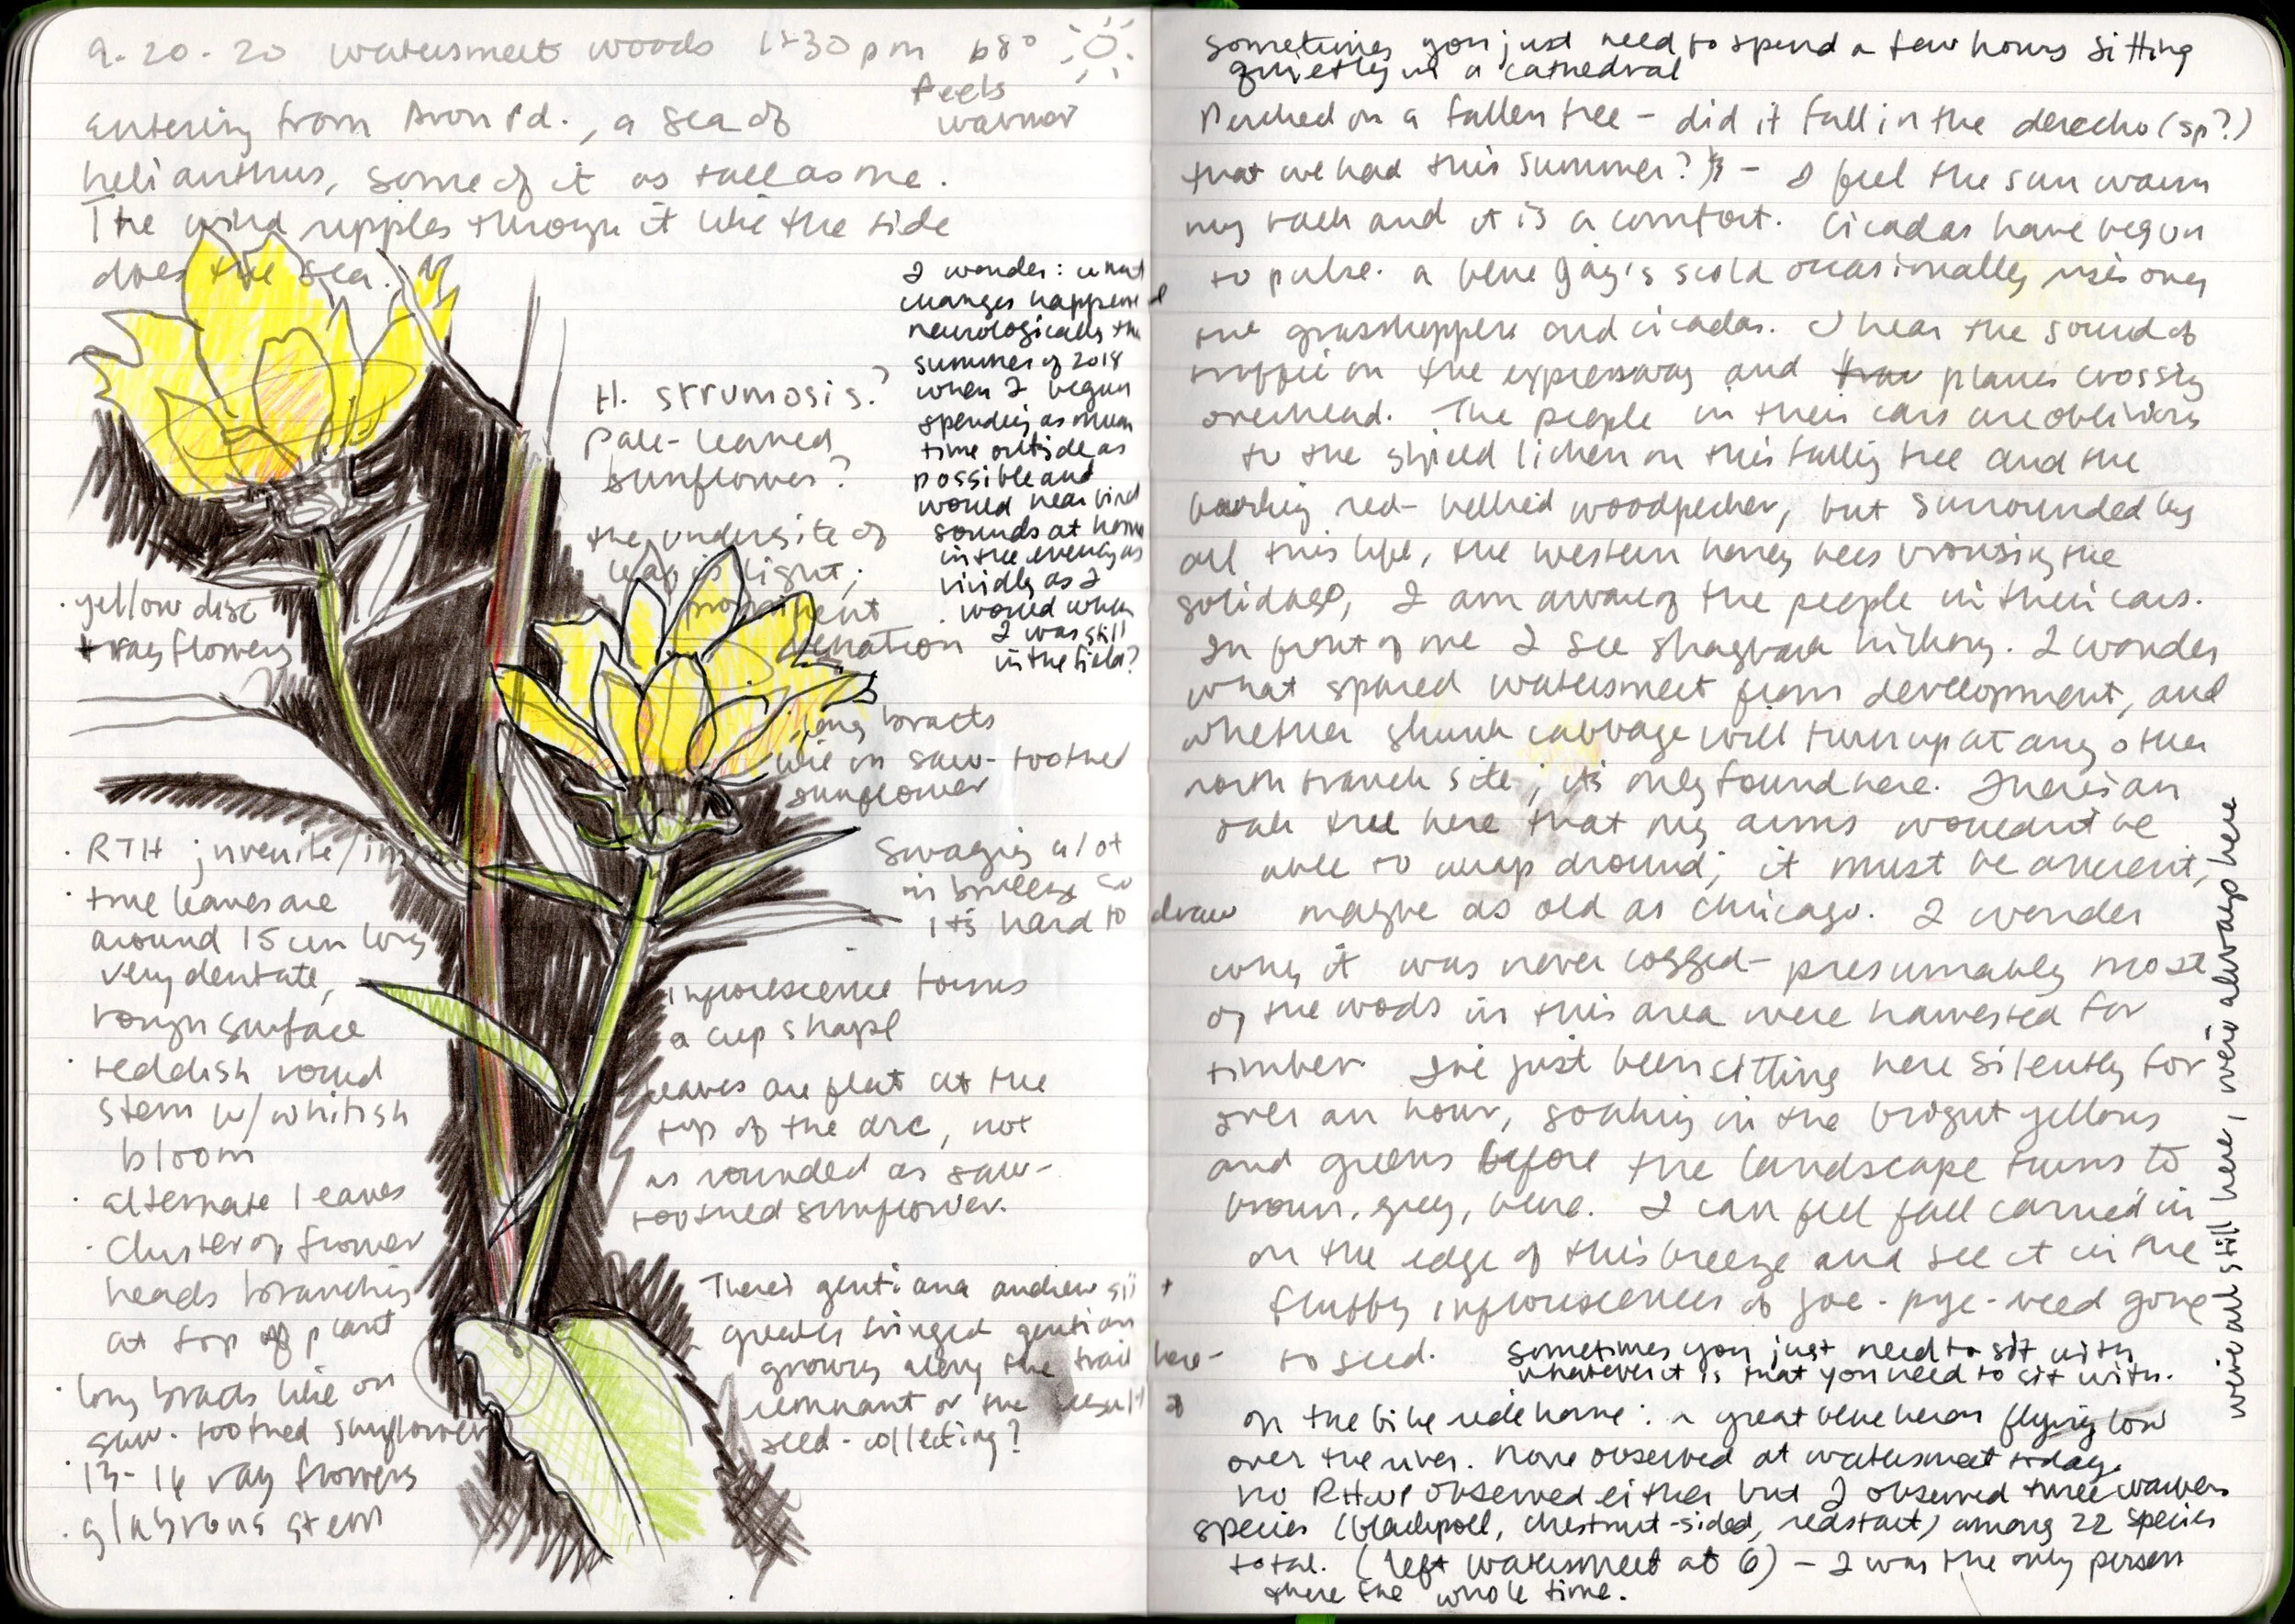 9.20.20 watersmeet woods 1:30pm 68°
feels
warmer
entering from Avon rd., a sea of
helianthus, some of it as tall as me.
The wind ripples through it like the tide
does the sea.
I wonder: what
changes happened
neurologically the
summer of 2018
when I began
spending as much
time outside as
possible and
would hear bird
sounds at home
in the evening as
vividly as I
would when
I was still
in the field?
H. strumosis?
pale-leaved
sunflower?
the underside of
leaf is light;
prominent
venation
· yellow disc
+ ray flowers
long bracts
like on saw-toothed
sunflower
swaying a lot
in breeze so
it's hard to draw
· RTH juvenile/
· true leaves are
around 15 cm long
very dentate,
rough surface
· reddish round
stem w/ whitish
bloom
· alternate leaves
· cluster of flower
heads branching
at top of plant
· long bracts like on
saw-toothed sunflower
· 13-16 ray flowers
· glabrous stem
inflorescence forms
a cup shape
leaves are flat at the
top of the arc, not
as rounded as saw-
toothed sunflower.
There's gentiana andrewsii +
greater fringed gentian
growing along the trail here-
remnant or the result of
seed-collecting?
sometimes you just need to spend a few hours sitting
quietly in a cathedral
Perched on a fallen tree - did it fall in the derecho (sp?)
that we had this summer? - I feel the sun warm
my back and it is a comfort. Cicadas have begun
to pulse. a blue jay's scold occasionally rises over
the grasshoppers and cicadas. I hear the sound of
traffic on the expressway and planes crossing
overhead. The people in their cars are oblivious
to the shield lichen on this falling tree and the
barking red-bellied woodpecker, but surrounded by
all this life, the western honey bees browsing the
solidago, I am aware of the people in their cars.
In front of me I see shagbark hickory. I wonder
what spared watersmeet from development, and
whether skunk cabbage will turn up at any other
north branch site; it's only found here. There's an
oak tree here that my arms wouldn't be
able to wrap around; it must be ancient,
maybe as old as Chicago. I wonder
why it was never logged- presumably most
of the woods in this area were harvested for
timber. I've just been sitting here silently for
over an hour, soaking in the bright yellows
and greens before the landscape turns to
brown, grey, blue. I can feel fall carried in
on the edge of this breeze and see it in the
fluffy inflorescences of joe-pye-weed gone
to seed.
sometimes you just need to sit with
whatever it is that you need to sit with.
on the bike ride home: a great blue heron flying low
over the river. None observed at watersmeet today.
no RHWP observed either but I observed three warbler
species (blackpoll, chestnut-sided, redstart) among 22 species
total. (left watersmeet at 6) - I was the only person
there the whole time.
we're all still here, we're always here